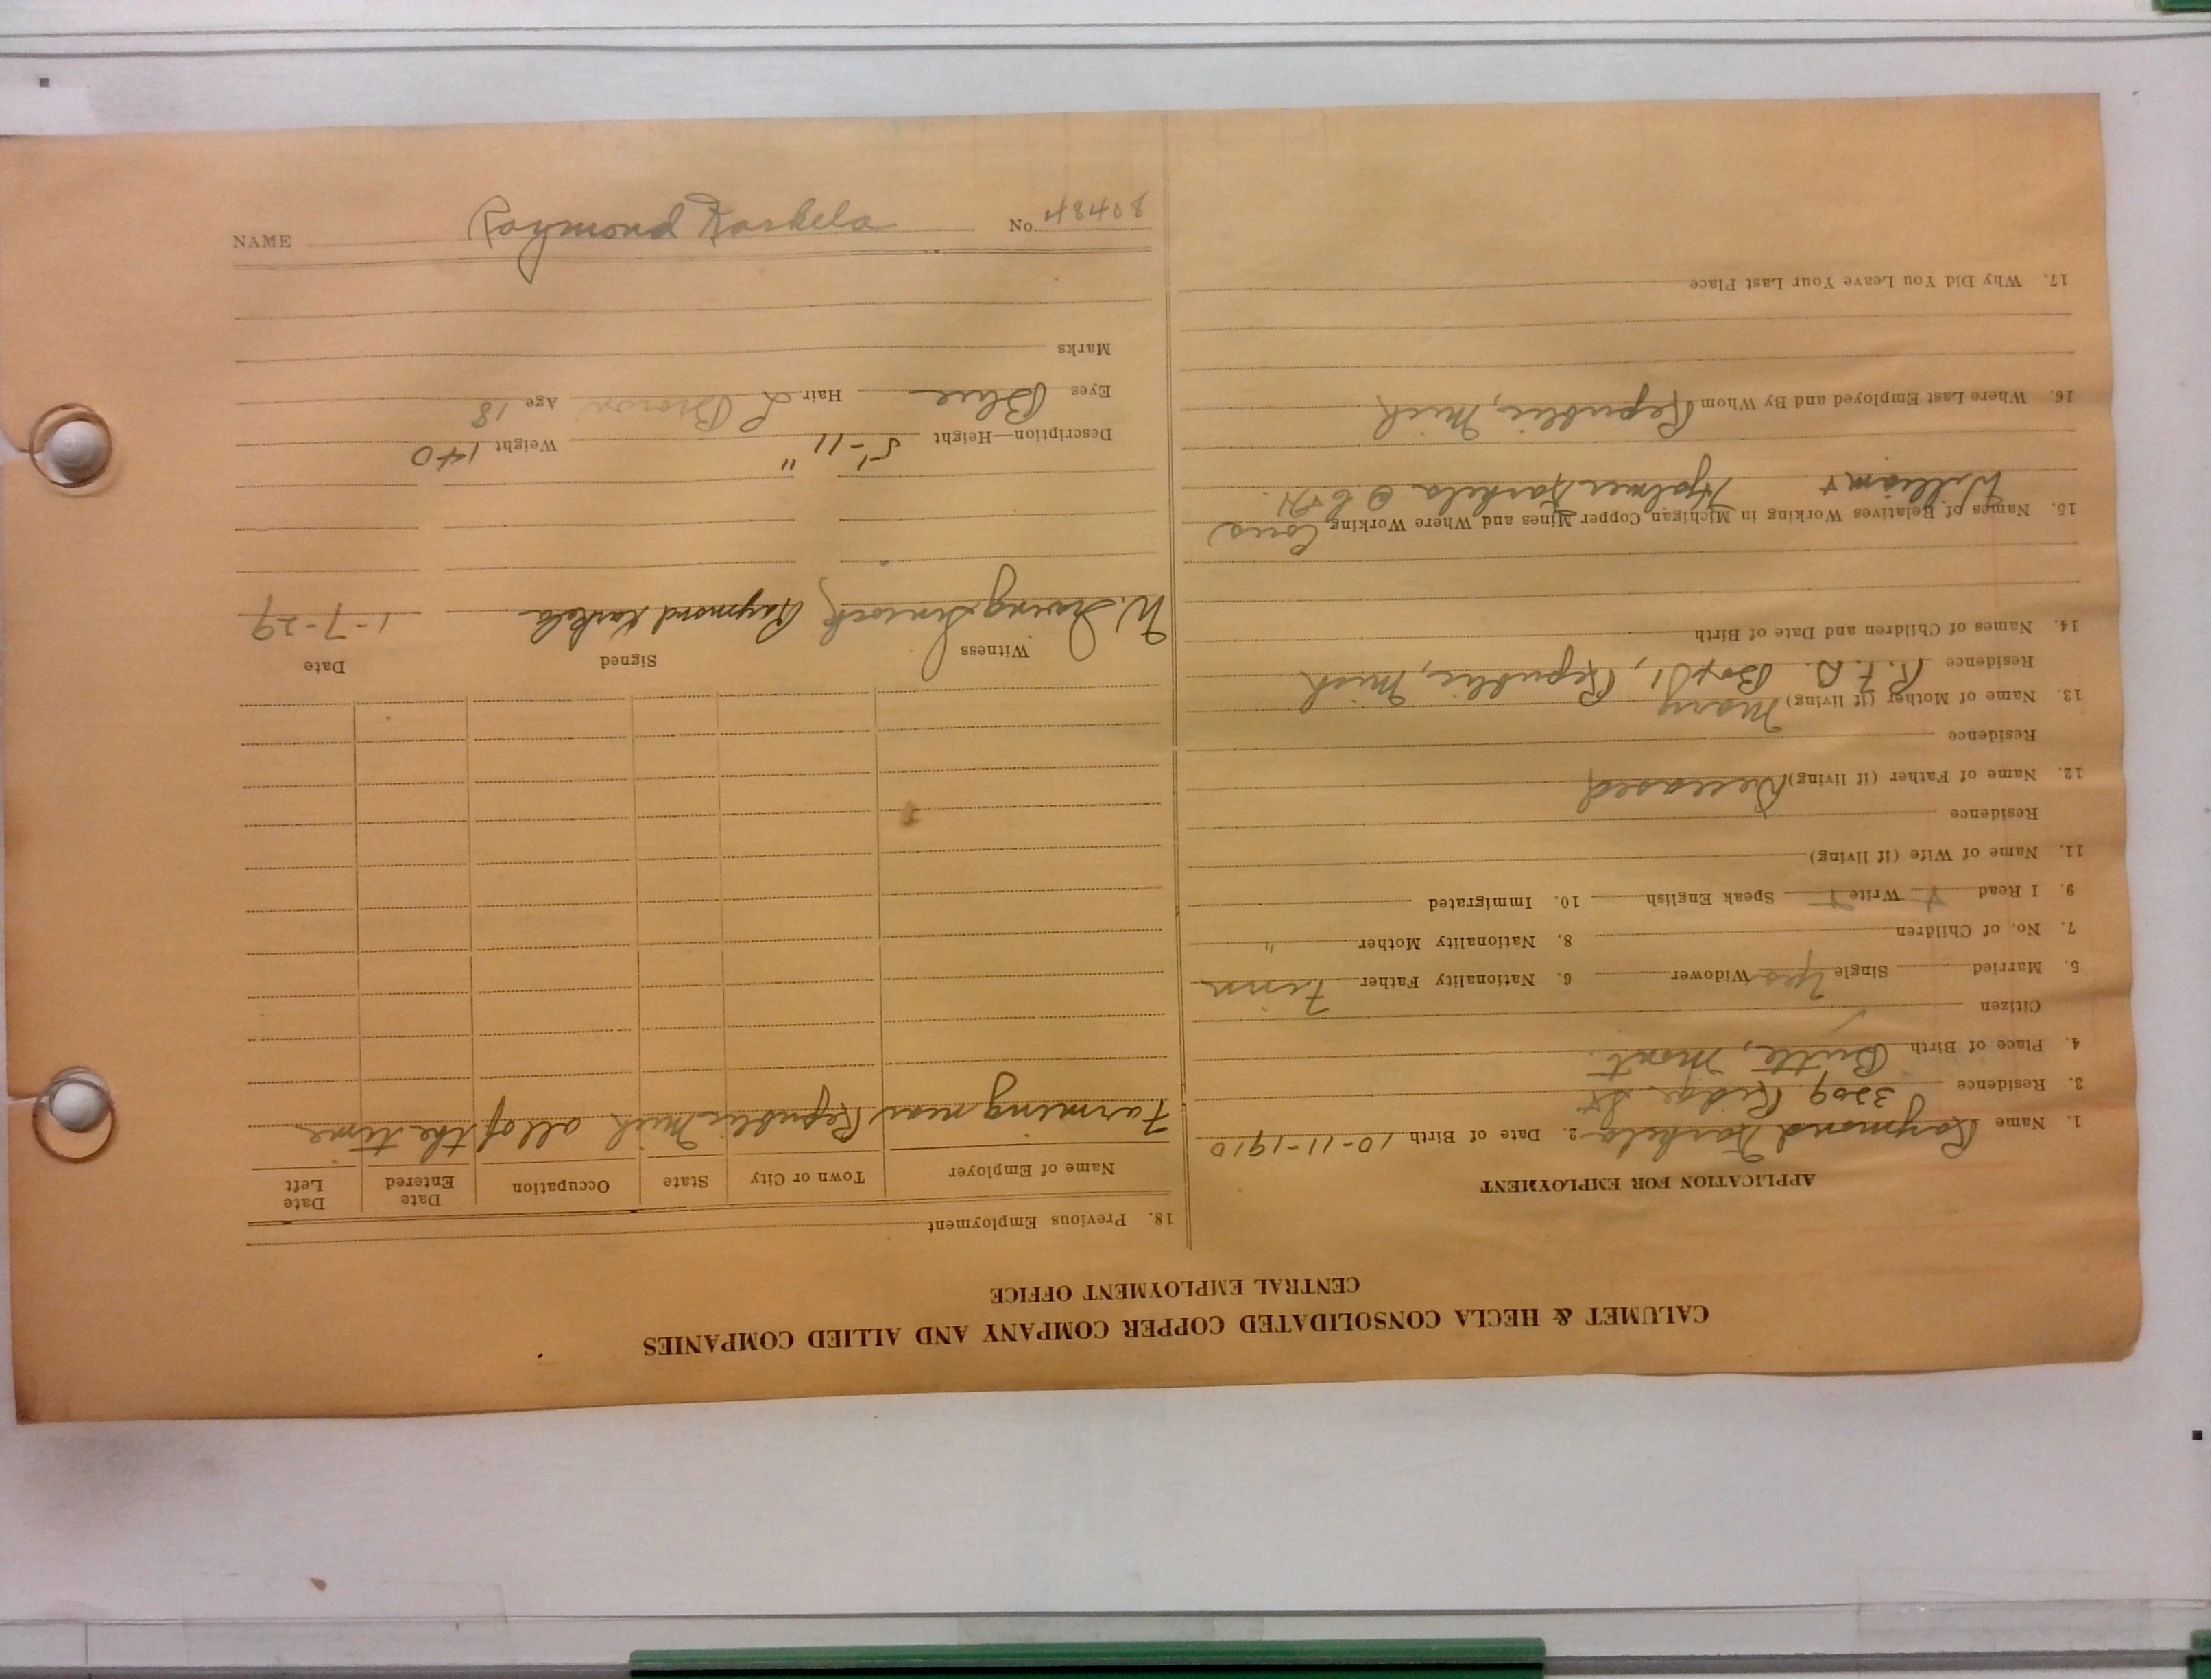 CALUMET & HECLA CONSOLIDATED COPPER COMPANY AND ALLIED COMPANIES
CENTRAL EMPLOYMENT OFFICE
APPLICATION FOR EMPLOYMENT
1. Name Raymond Karkela 2. Date of Birth 10-11-1910
3. Residence 3209 Ridge St
4. Place of Birth Butte, Mont.
Citizen
5. Married Single Yes Widower 6. Nationality Father Finn
7. No. of Children 8. Nationality Mother "
9. I Read Y Write Y Speak English 10. Immigrated
11. Name of Wife (if living)
Residence
12. Name of Father (if living) Deceased
Residence
13. Name of Mother (if living) Mary
Residence R.F.D. Box 51, Republic, Mich
14. Names of Children and Date of Birth
15. Names of Relatives Working in Michigan Copper Mines and Where Working Cous
William & Hjalmer Karkela @ C+H.
16. Where Last Employed and By Whom Republic, Mich
17. Why Did You Leave Your Last Place
18. Previous Employment
Name of Employer Town or City State Occupation Date Entered Date Left
Farming near Republic Mich all of the time
Witness Signed Date
W. Irving Raymond Karkela 1-7-29
Description—Height 5'-11" Weight 140
Eyes Blue Hair L Brown Age 18
Marks
NAME Raymond Karkela No. 48408